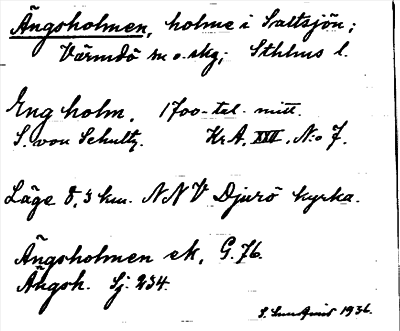 Ängsholmen, holme i Saltsjön;
Värmdö sn o. skg; Sthlms l.
Eng holm. 1700-tal. mitt.
S. von Schultz. Kr. A. XIII. N:o 7.
Läge 8,3 km. NNV Djurö kyrka.
Ängsholmen ek. G. 76.
Ängsh. Sj. 234.
S. Sundqvist 1936.